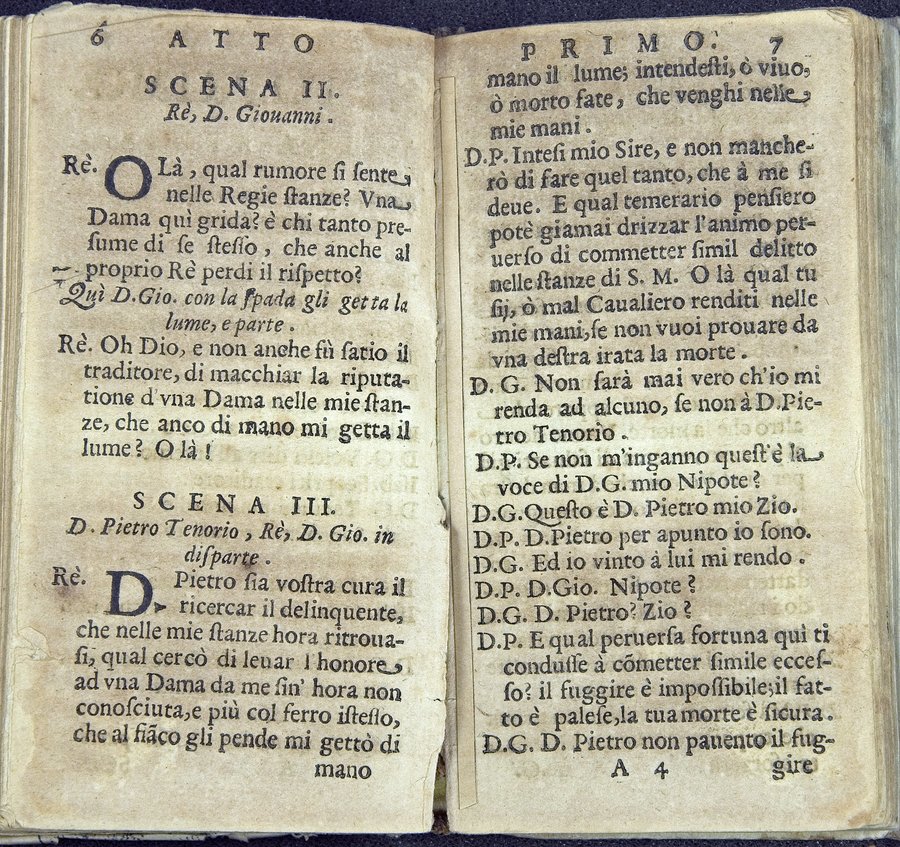 6 ATTO
SCENA II.
Rè, D. Giouanni.
Rè. OLà, qual rumore ſi ſente
nelle Regie ſtanze? Vna
Dama quì grida? è chi tanto pre-
ſume di ſe ſteſſo, che anche al
proprio Rè perdi il riſpetto?
Quì D.Gio. con la ſpada gli getta la
lume, e parte.
Rè. Oh Dio, e non anche fù ſatio il
traditore, di macchiar la riputa-
tione d'vna Dama nelle mie ſtan-
ze, che anco di mano mi getta il
lume? O là!
SCENA III.
D. Pietro Tenorio, Rè, D. Gio. in
diſparte.
Rè. D. Pietro ſia voſtra cura il
ricercar il delinquente,
che nelle mie ſtanze hora ritroua-
ſi, qual cercò di leuar l'honore
ad vna Dama da me ſin' hora non
conoſciuta, e più col ferro iſteſſo,
che al fiãco gli pende mi gettò di
mano
PRIMO. 7
mano il lume; intendeſti, ò viuo,
ò morto fate, che venghi nelle
mie mani.
D.P. Inteſi mio Sire, e non manche-
rò di fare quel tanto, che à me ſi
deue. E qual temerario penſiero
potè giamai drizzar l'animo per-
uerſo di commetter ſimil delitto
nelle ſtanze di S. M. O là qual tu
ſij, ò mal Caualiero renditi nelle
mie mani, ſe non vuoi prouare da
vna deſtra irata la morte.
D. G. Non ſarà mai vero ch'io mi
renda ad alcuno, ſe non à D.Pie-
tro Tenorio.
D.P. Se non m'inganno queſt'è la
voce di D.G. mio Nipote?
D.G. Queſto è D. Pietro mio Zio.
D.P. D.Pietro per apunto io ſono.
D.G. Ed io vinto à lui mi rendo.
D.P. D.Gio. Nipote?
D.G. D. Pietro? Zio?
D.P. E qual peruerſa fortuna quì ti
conduſſe à cõmetter ſimile ecceſ-
ſo? il fuggire è impoſſibile; il fat-
to è paleſe, la tua morte è ſicura.
D.G. D. Pietro non pauento il fug-
A 4 gire